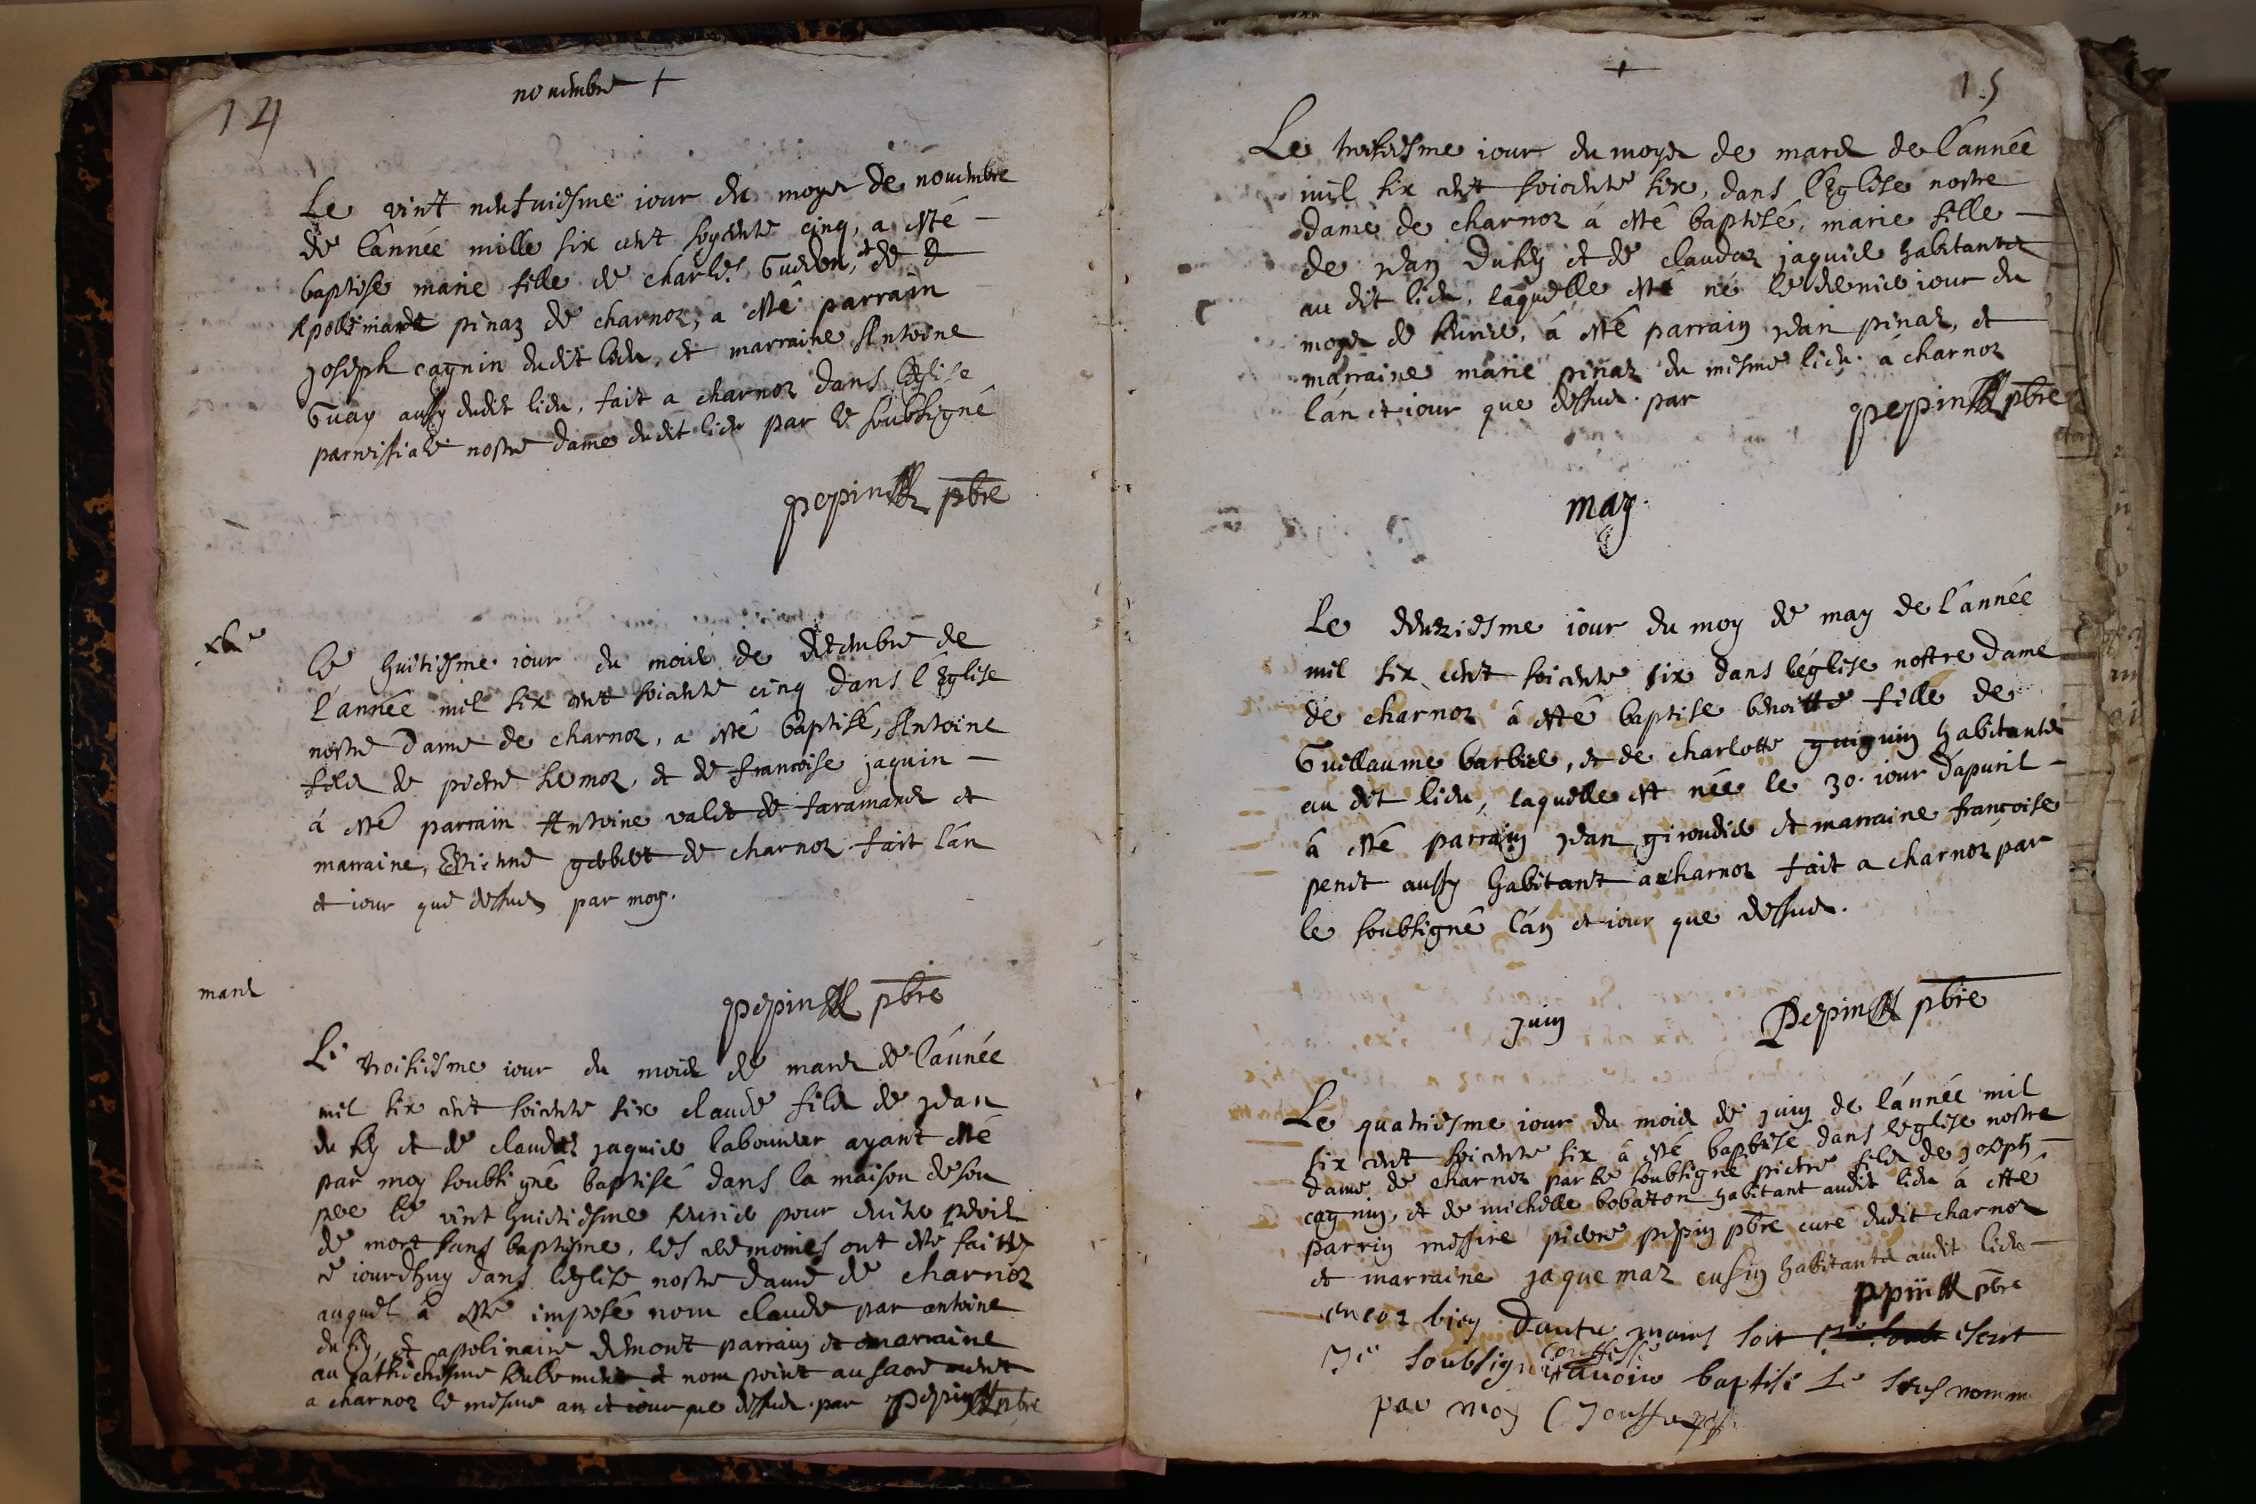 14
novembre +
Le vint neufuiesme iour du moys de nouembre
de l'année mille six cent soyxente cinq, a esté
baptise marie fille de charles Gueden, et de
Apolimarde pinaz de charnoz, a esté parrain
Joseph cagnin dudit lieu, et marraine Antoine
Guay aussy dudit lieu, fait a charnoz dans l'Eglise
parroissiale nostre dame dudit lieu par le soubsigné
pepin pbre
xbre
Le huitiesme iour du mois de decembre de
l'année mil six cent soicente cinq dans l'Eglise
nostre Dame de charnoz, a esté baptisé, Antoine
fils de pierre semoz, et de francoise jaquin
à esté parrain Antoine valet de faramans et
marraine, Estienne gebbet de charnoz fait l'an
et iour que dessus par moy.
pepin pbre
mars
Le troisiesme iour du mois de mars de l'année
mil six cent soicente six claude fils de jean
du by et de claudaz jaquie laboureur ayant esté
par moy soubsigné baptisé dans la maison de son
pere le vint huictiesme feurier pour euiter peril
de mort sans baptisme, les ceremonies ont esté faittes
ce iourdhuy dans l'eglise nostre dame de charnoz
auquel à esté imposé nom claude par antoine
du by, et apolinaire demont parrain et marraine
au cathechisme seulement et nom point au sacrement
a charnoz le mesme an et iour que dessus par pepin pbre
+
15
Le troisiesme iour du moys de mars de l'année
mil six cent soicente six, dans l'Eglise nostre
dame de charnoz à esté baptisé, marie fille
de jean Duby et de claudaz jaquie habitants
au dit lieu, laquelle esté né le dernier iour du
moys de feurier, à esté parrain jean pinaz, et
marraine marie pinaz du mesme lieu à charnoz
l'an et iour que dessus. par
pepin pbre
may
Le deuziesme iour du moy de may de l'année
mil six cent soicente six dans l'église nostre dame
de charnoz à esté baptise benoitte fille de
Guillaume barbier, et de charlotte guiguin habitants
au dit lieu, laquelle est née le 30. iour d'apuril
à esté parrain jean giroudie et marraine francoise
penet aussy habitant a charnoz fait a charnoz par
le soubsigné l'an et iour que dessus.
Pepin pbre
juin
Le quatriesme iour du mois de juin de l'année mil
six cent soicente six à esté baptise dans l'eglise nostre
dame de charnoz par le soubsigné pierre fils de joseph
cagnin, et de michelle bobatton habitant audit lieu à esté
parrin messire pierre pepin pbre curé dudit charnoz
et marraine jaquemaz cusin habitante audit lieu
pepin pbre
encor bien dautre mains soit escrit
Je soubsigné confesse auoir baptisé le sus nomm
par moy